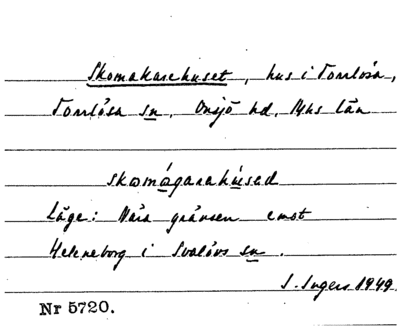 Skomakarehuset, hus i Torrlösa,
Torrlösa sn, Onsjö hd, Mhs län
skomágarahúsed
Läge: Nära gränsen emot
Heleneborg i Svalövs sn.
I. Ingers 1949.
Nr 5720.